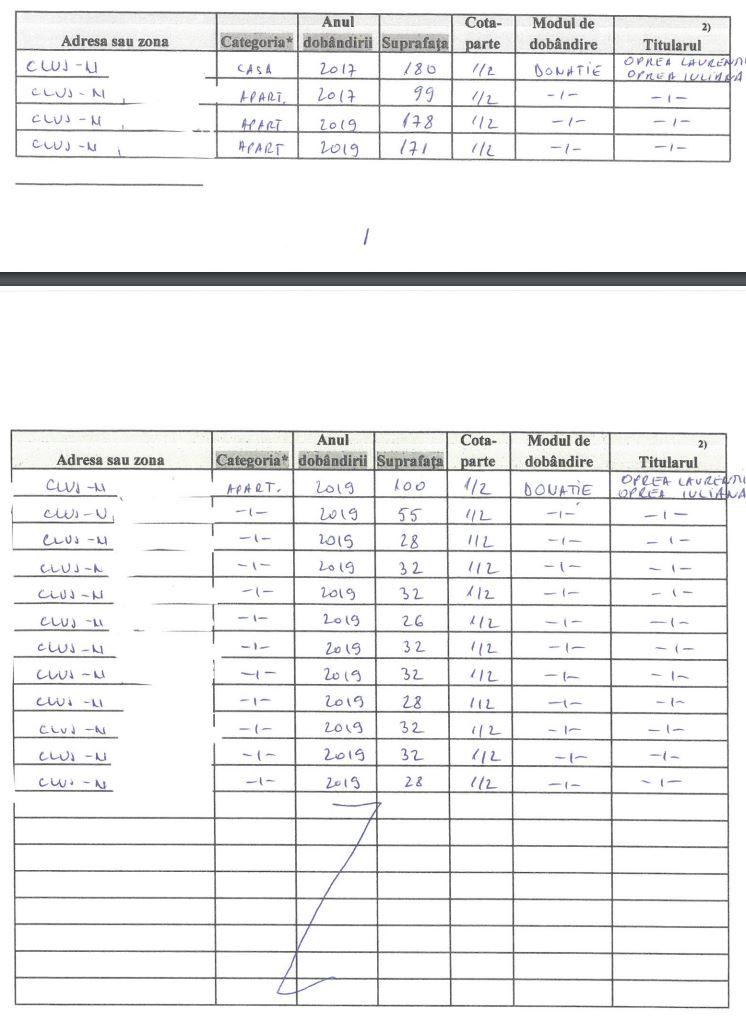 Adresa sau zona Categoria* Anul dobândirii Suprafața Cota-parte Modul de dobândire 2) Titularul
CLUJ-N CASA 2017 180 1/2 DONATIE OPREA LAURENTI OPREA IULIANA
CLUJ-N, APART. 2017 99 1/2 -ı- -ı-
CLUJ-N APART 2019 178 1/2 -ı- -ı-
CLUJ-N, APART 2019 171 1/2 -ı- -ı-
1
Adresa sau zona Categoria* Anul dobândirii Suprafața Cota-parte Modul de dobândire 2) Titularul
CLUJ-N APART. 2019 100 1/2 DONATIE OPREA LAURENTI OPREA IULIANA
CLUJ-N, -ı- 2019 55 1/2 -ı- -ı-
CLUJ-N -ı- 2019 28 1/2 -ı- -ı-
CLUJ-N -ı- 2019 32 1/2 -ı- -ı-
CLUJ-N -ı- 2019 32 1/2 -ı- -ı-
CLUJ-N -ı- 2019 26 1/2 -ı- -ı-
CLUJ-N -ı- 2019 32 1/2 -ı- -ı-
CLUJ-N -ı- 2019 32 1/2 -ı- -ı-
CLUJ-N -ı- 2019 28 1/2 -ı- -ı-
CLUJ-N -ı- 2019 32 1/2 -ı- -ı-
CLUJ-N -ı- 2019 32 1/2 -ı- -ı-
CLUJ-N -ı- 2019 28 1/2 -ı- -ı-